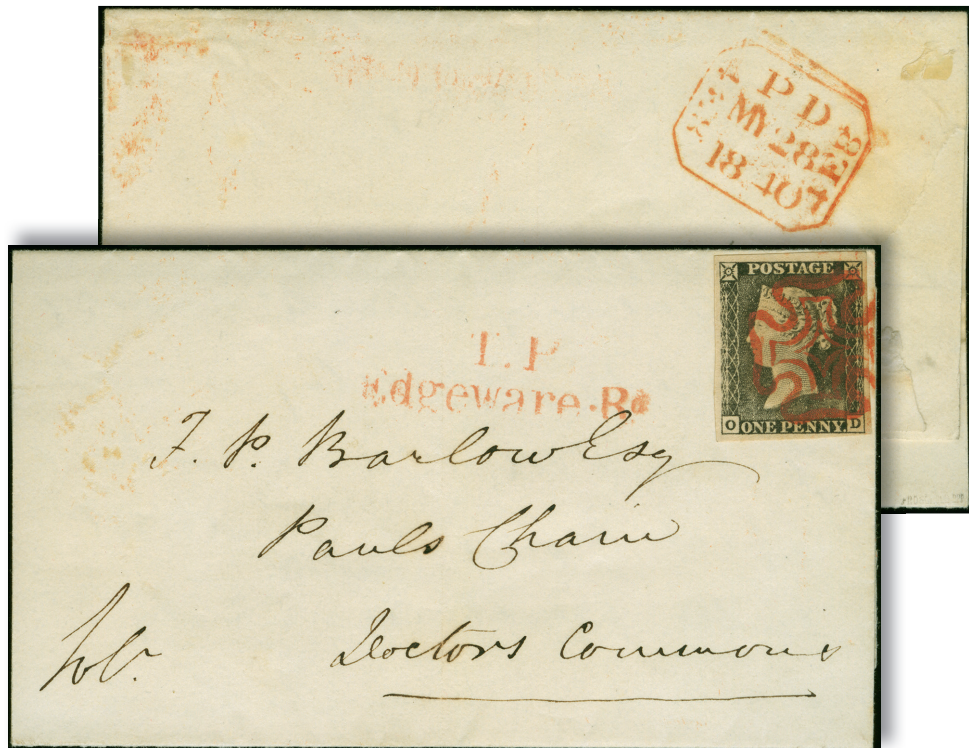 P D
MY 28
1840
POSTAGE
O ONE PENNY. D
T.P
Edgeware. Rd
J. P. Barlow Esq
Pauls Chain
Doctors Commons